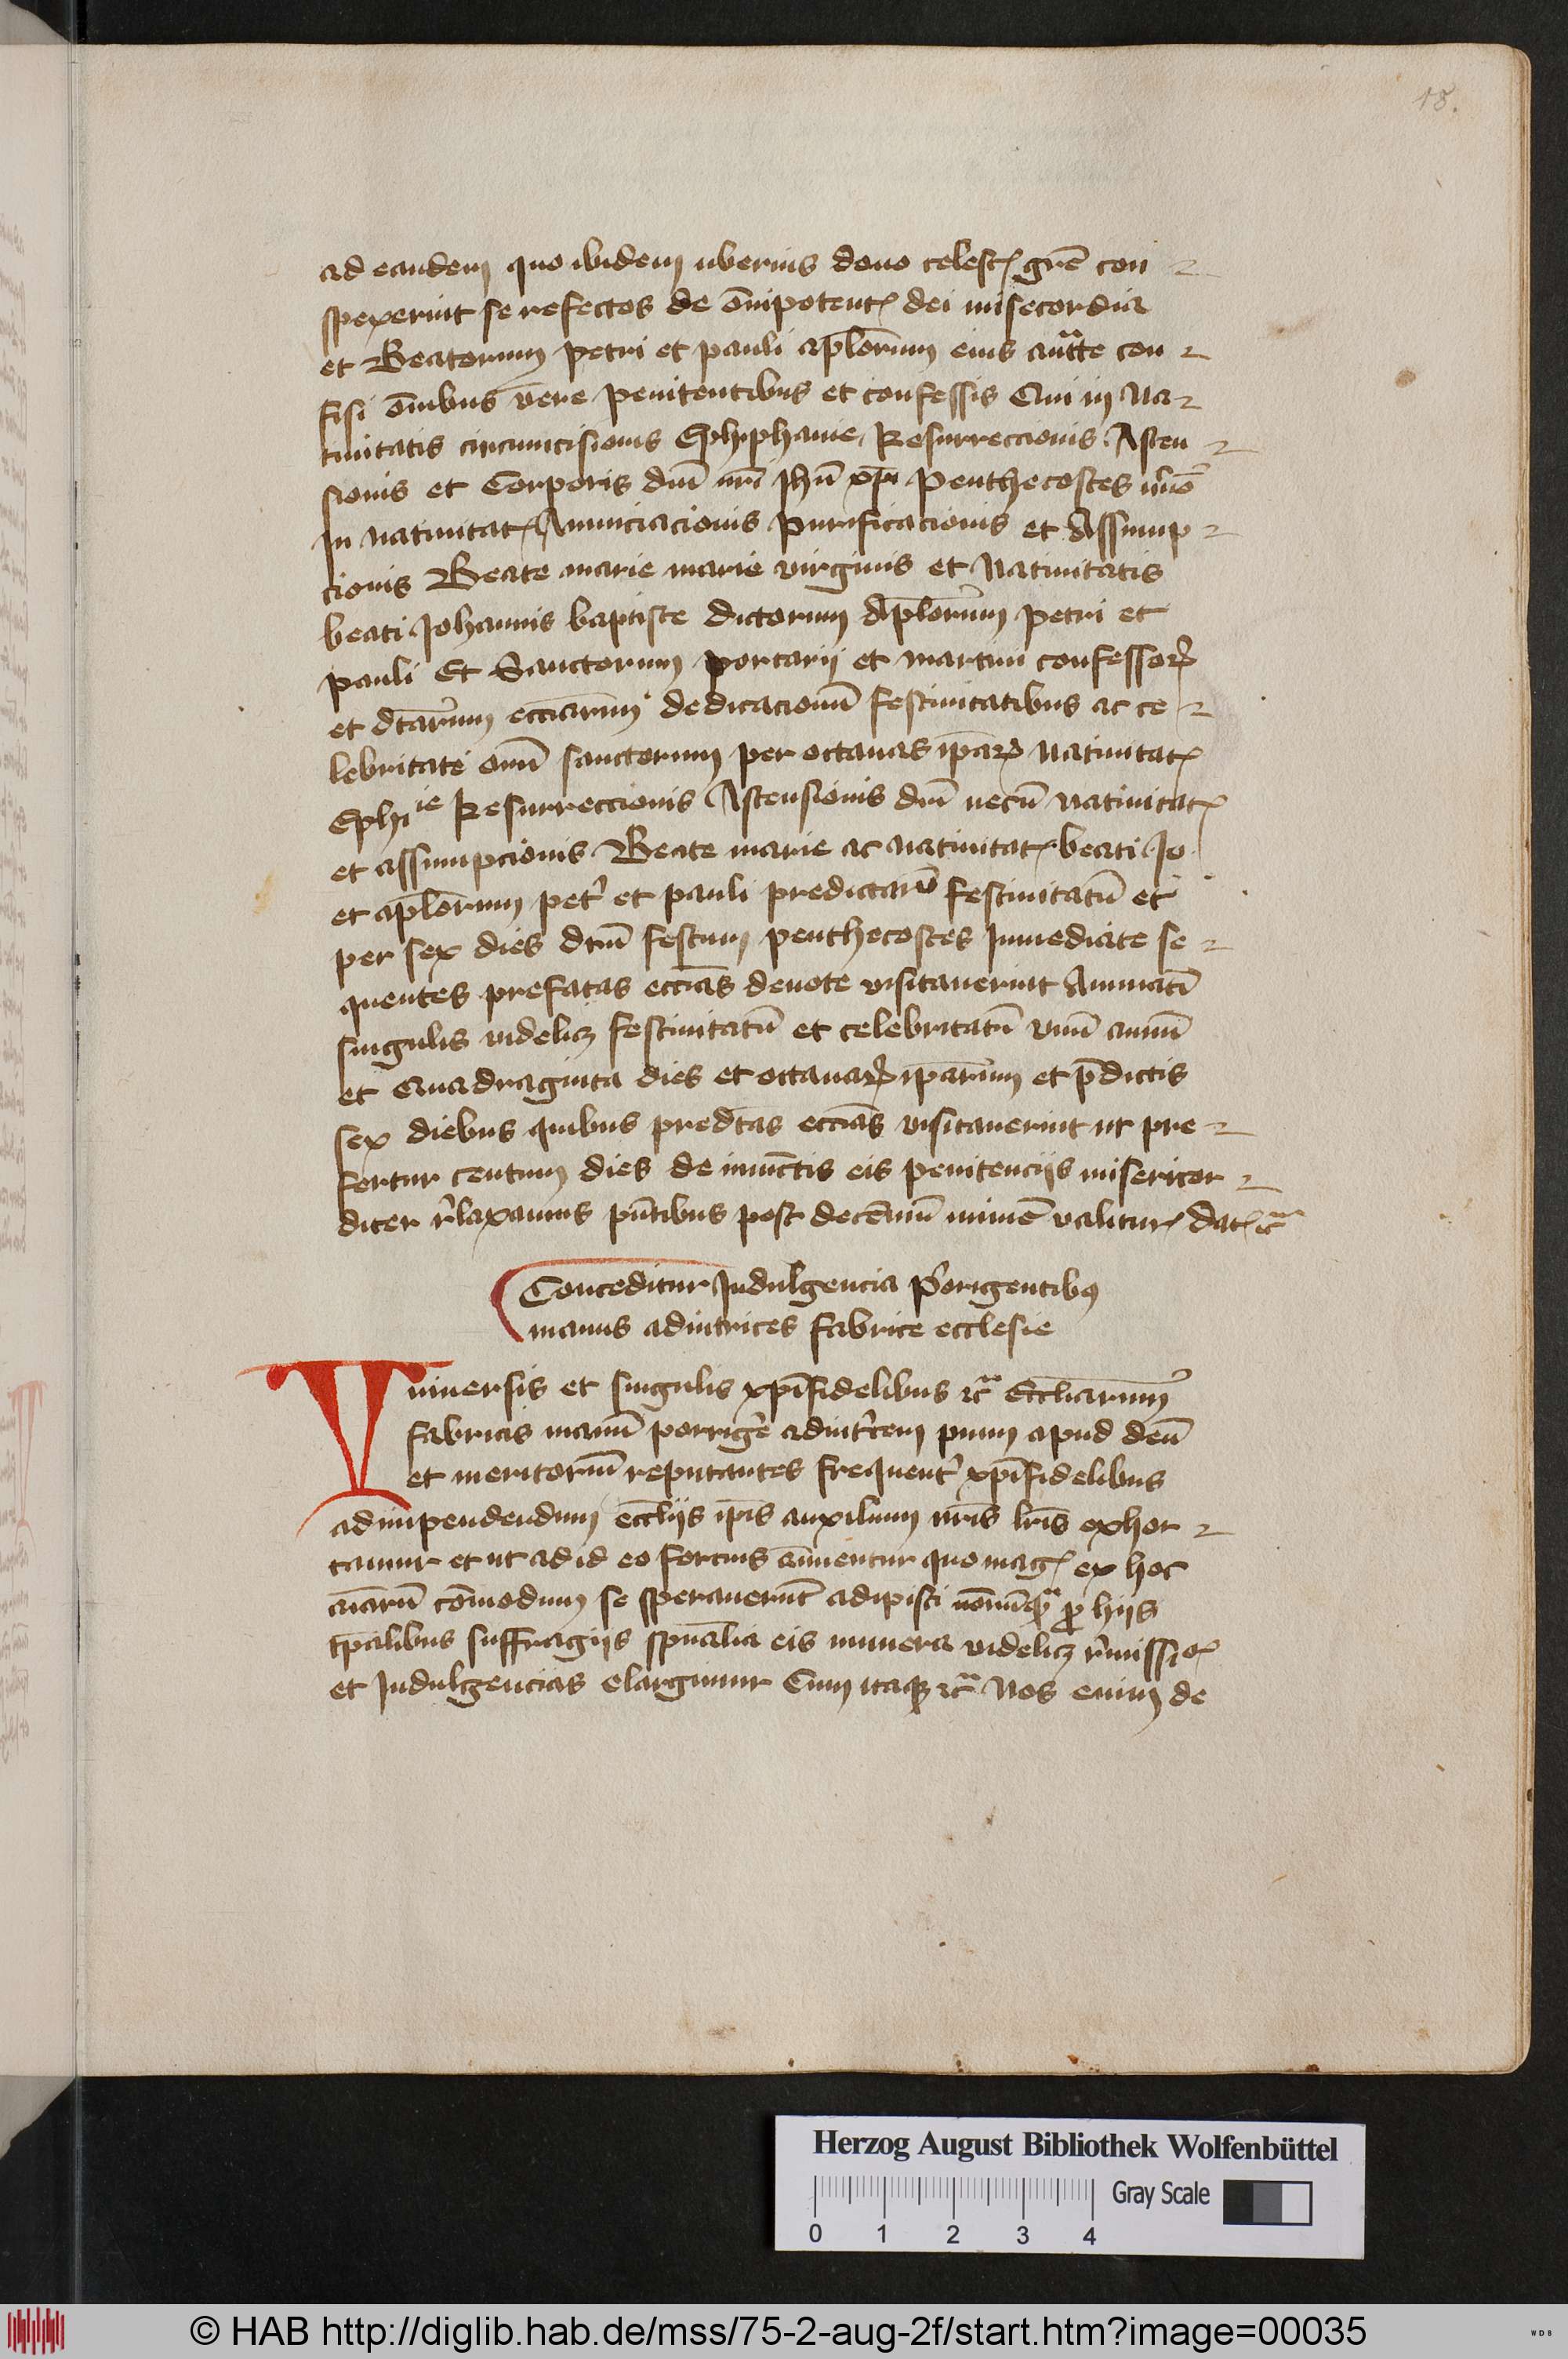 18.
ad eandem quo ibidem uberius dono celestꝭ grē con
spexerint se refectos de om̄ipotentꝭ dei misecordia
et Beatorum petri et pauli apl̄orum eius auc̄tte con
fisi om̄ibus vere penitentibus et confessis Qui in Na
tiuitatis circumcisionis Ephiphanie Resurreccionis Ascen
sionis et Corporis dn̄i nr̄i Jhū xp̄i Penthecostes necnō
In natiuitatꝭ Anunciacionis Purificacionis et Assump
cionis Beate marie marie virginis et Natiuitatis
beati Johannis baptiste dictorum Apl̄orum Petri et
pauli Et Sanctorum portarii et martini confessoꝝ
et dc̄tarum eccīarum dedicacionū festiuitatibus ac ce
lebritate om̄ sanctorum per octauas ip̄aꝝ natiuitatꝭ
Ephiie Resurreccionis Ascensionis dn̄i necn̄ natiuitatꝭ
et assumpcionis Beate marie ac natiuitatꝭ beati Jo
et apl̄orum petri et pauli predictarū festiuitatū et
per sex dies dc̄m festum penthecostes Inmediate se
quentes prefatas eccīas deuote visitauerint Annuatī
singulis videlicꝫ festiuitatū et celebritatū vnū annū
et Quadraginta dies et octauaꝝ ip̄arum et p̄dictis
sex diebus quibus predc̄tas eccīas visitauerint ut pre
fertur centum dies de iniūctis eis penitencijs misericor
diter r̄laxamus p̄ntibus post decēniū mīmē valiturꝭ Datꝭ ꝛc̄
Conceditur Indulgencia Porigentibꝰ
manus adiutrices fabrice ecclesie
Vniuersis et singulis xp̄ifidelibus ꝛc̄ Eccl̄iarum
fabricis manū porrigere adiutricem pium apud deū
et meritoriū reputantes frequenter xp̄ifidelibus
ad impendendum eccl̄ijs ip̄is auxilium nr̄is lr̄is exhor
tamur et ut ad id eo fortius aīmentur quo magꝭ ex hoc
aīarū cōmodum se sperauerint adipisci nonnūqꝫ pro hijs
tp̄alibus suffragijs spūalia eis munera videlicꝫ r̄missiōꝭ
et Indulgencias elargimur Cum itaqꝫ ꝛc̄ Nos enim de
Herzog August Bibliothek Wolfenbüttel
Gray Scale
0 1 2 3 4
© HAB http://diglib.hab.de/mss/75-2-aug-2f/start.htm?image=00035